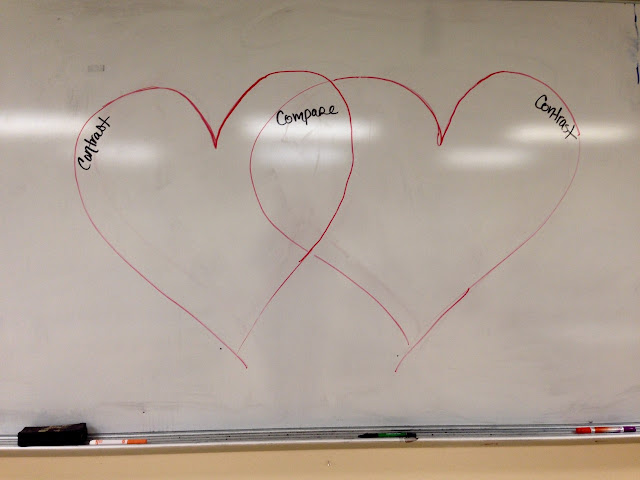 Contrast
Compare
Contrast